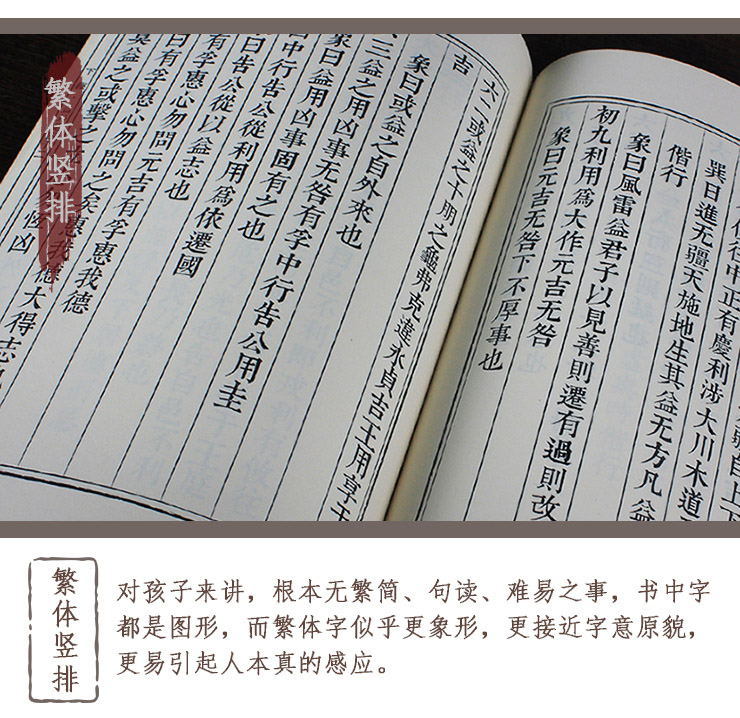 繁体竖排
自上下
往中正有慶利涉大川木道
巽日進无疆天施地生其益无方凡益
偕行
象曰風雷益君子以見善則遷有過則改
初九利用爲大作元吉无咎
象曰元吉无咎下不厚事也
六二或益之十朋之龜弗克違永貞吉王用享于
吉
象曰或益之自外來也
三益之用凶事无咎有孚中行告公用圭
象曰益用凶事固有之也
中行告公從利用爲依遷國
曰告公從以益志也
有孚惠心勿問元吉有孚惠我德
曰有孚惠心勿問之矣惠我德大得志也
益之或擊之 恆凶
下
繁体竖排
对孩子来讲，根本无繁简、句读、难易之事，书中字
都是图形，而繁体字似乎更象形，更接近字意原貌，
更易引起人本真的感应。